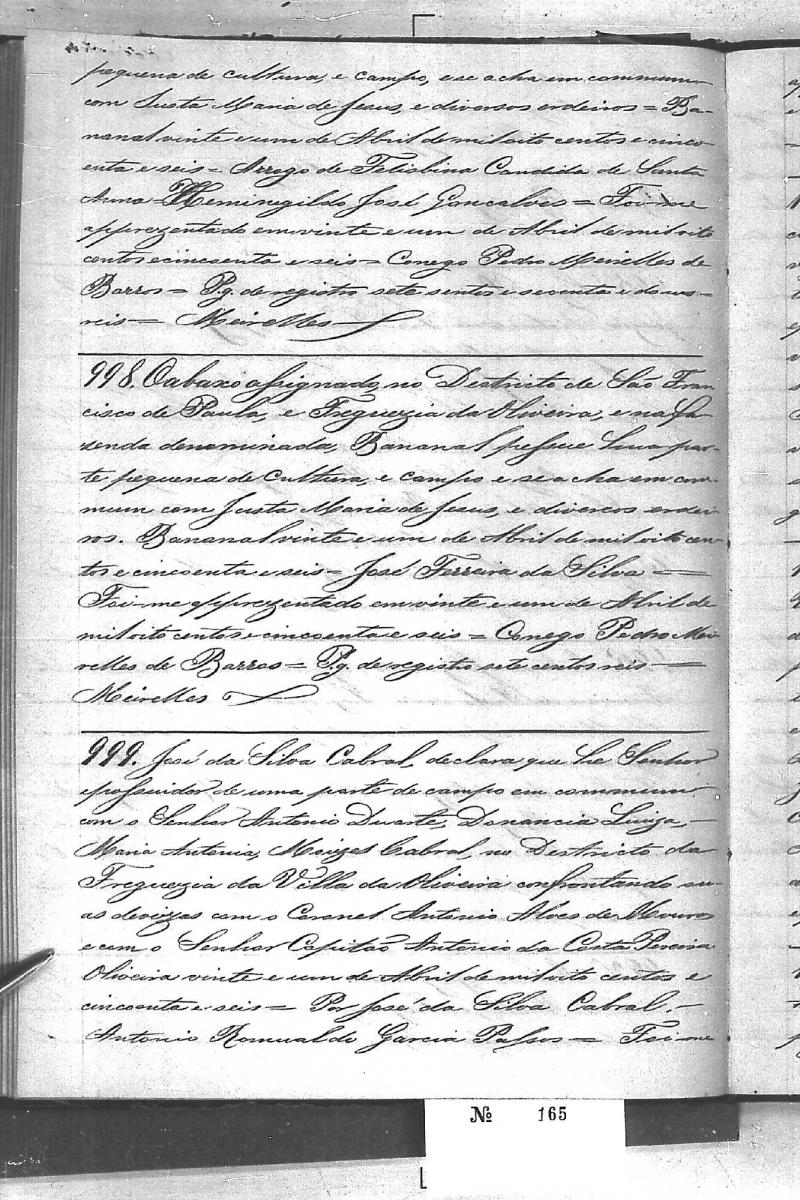 pequena de cultura, e campo, e se acha em commum
com Justa Maria de Jesus, e diversos erdeiros = Ba-
nanal vinte e um de Abril de mil oito centos e cinco-
enta e seis = Arrogo de Felisbina Candida de Santa
Anna = Heminegildo José Gonçalves = Foi-me
apprezentado em vinte e um de Abril de mil oito
centos e cincoenta e seis = Conego Pedro Meirelles de
Barros = Pg. de registro sete sentos e secenta e dous
reis = Meirelles
998. O abaxo assignado, no Destricto de São Fran
cisco de Paula, e Freguezia da Oliveira, e na fa
zenda denominada, Bananal possue huma par-
te pequena de cultura, e campo e se acha em com
mum com Justa Maria de Jesus, e divercos erdei
ros. Bananal vinte e um de Abril de mil oito cen
tos e cincoenta e seis = José Ferreira da Silva =
Foi-me apprezentado em vinte e um de Abril de
mil oito centos e cincoenta e seis = Conego Pedro Mei
relles de Barros = Pg. de registro sete centos reis =
Meirelles
999. José da Silva Cabral, declara que he Senhor
e possuidor de uma parte de campo em commum
com o Senhor Antonio Duarte, Donancia Luiza, -
Maria Antonia, Moizes Cabral, no Destricto da
Freguezia da Villa da Oliveira confrontando su-
as devizas com o Coronel Antonio Alves de Moura
e com o Senhor Capitão Antonio da Costa Pereira
Oliveira vinte e um de Abril de mil oito centos e
cincoenta e seis = Por José da Silva Cabral. -
Antonio Romualdo Garcia Passos = Foi-me
№ 165